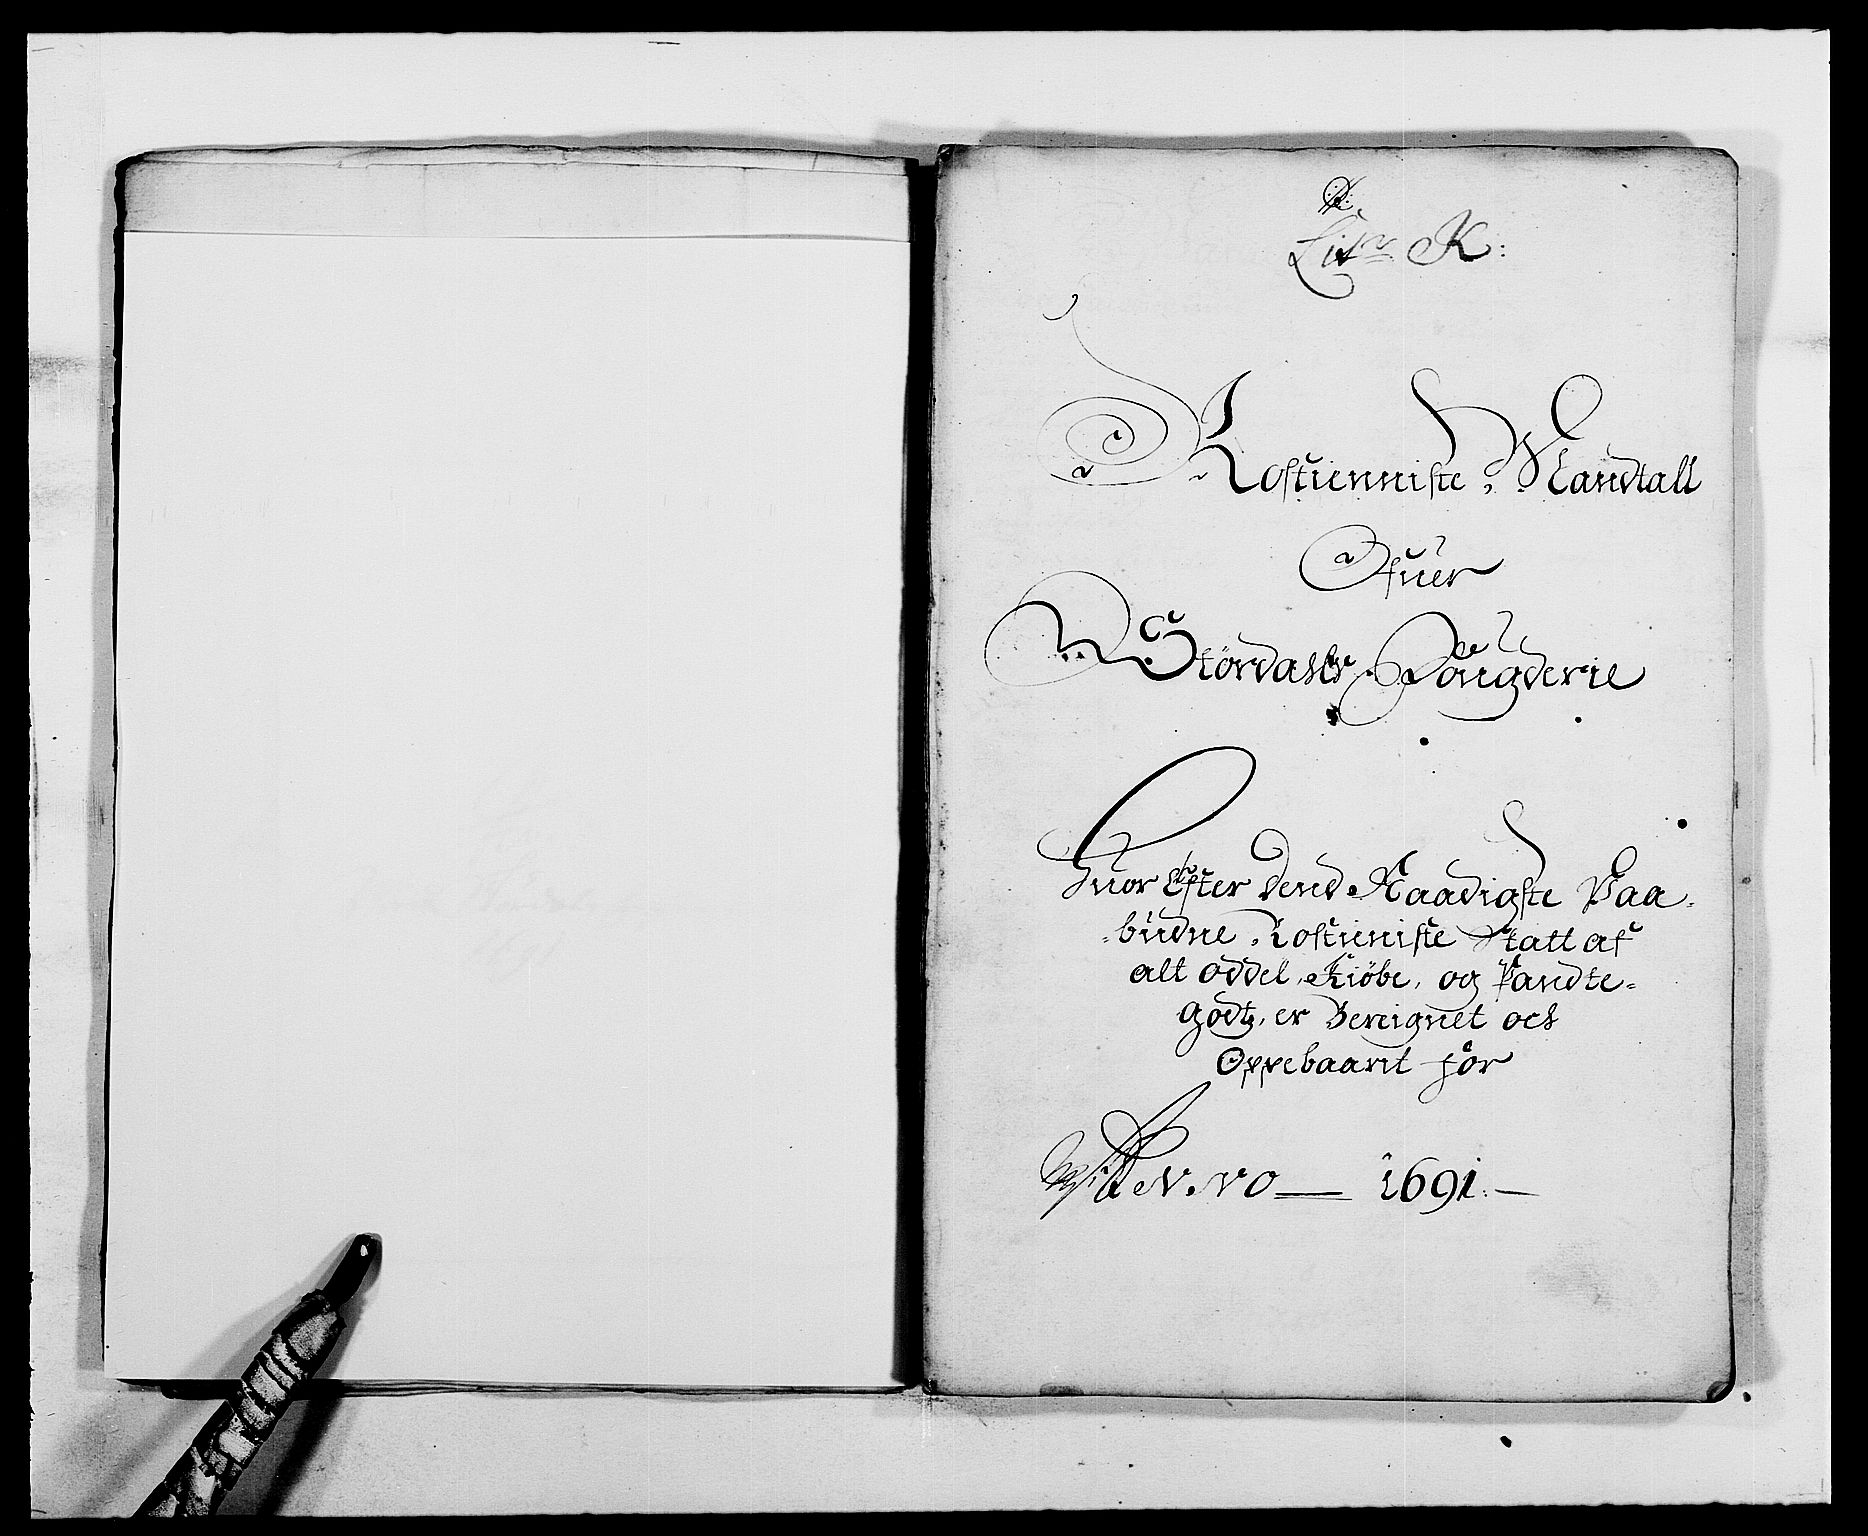 Litr K:
Rostienniste Mandtall
Ofuer
Størdahls Fougderie
Huor Efter dend Naadigste Paa-
-budne Rostieniste Skatt af
alt oddel, Kiøbe, og Pandte-
godtz, er Bereignet och
Oppebaarit for
Anno 1691